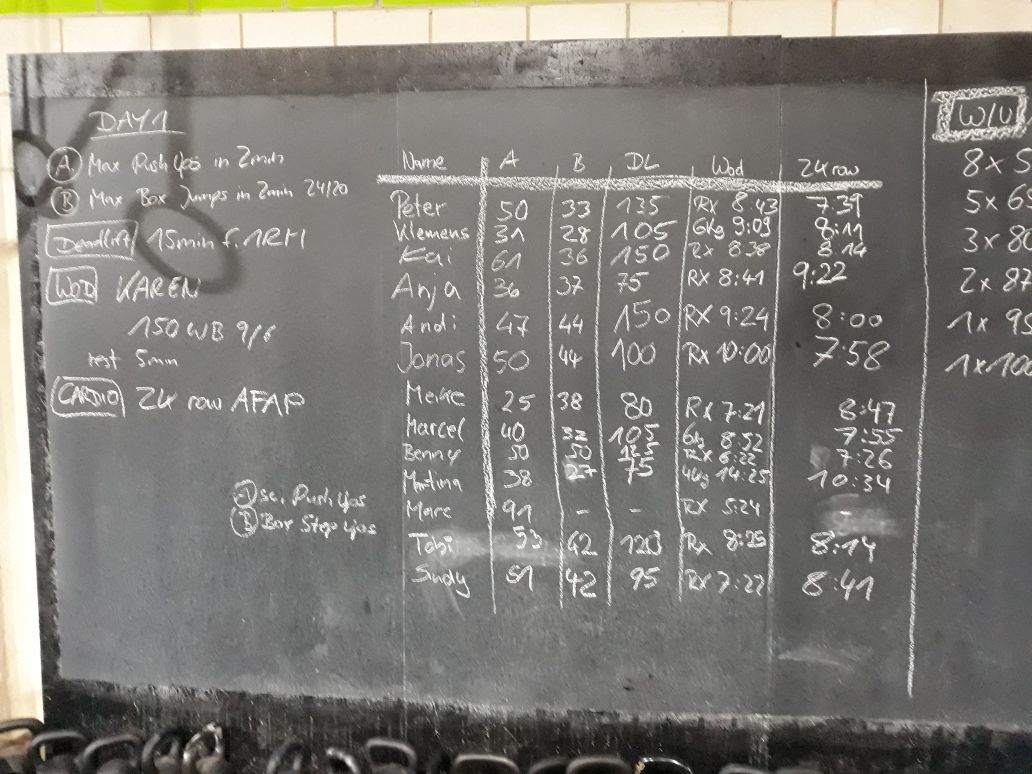 DAY 1
A. Max Push Ups in 2min
B Max Box Jumps in 2min 24/20
Deadlift 15min f. 1RM
WOD KAREN
150 WB 9/6
rest 5min
CARDIO 2K row AFAP
A sc. Push Ups
B Box Step Ups
Name A B DL Wod 2k row
Peter 50 33 135 RX 8:43 7:39
Klemens 31 28 105 6kg 9:03 8:11
Kai 61 36 150 Rx 8:38 8:14
Anja 36 37 75 RX 8:41 9:22
Andi 47 44 150 RX 9:24 8:00
Jonas 50 44 100 Rx 10:00 7:58
Meike 25 38 80 RX 7:21 8:47
Marcel 40 32 105 6kg 8:52 7:55
Benny 50 50 125 RX 8:22 7:26
Martina 38 27 75 4kg 14:25 10:34
Marc 91 - - RX 5:24 -
Tobi 53 42 120 Rx 8:25 8:14
Sindy 51 42 95 RX 7:22 8:41
W/U
8x 5
5x 6
3x 8
2x 87
1x 95
1x 100